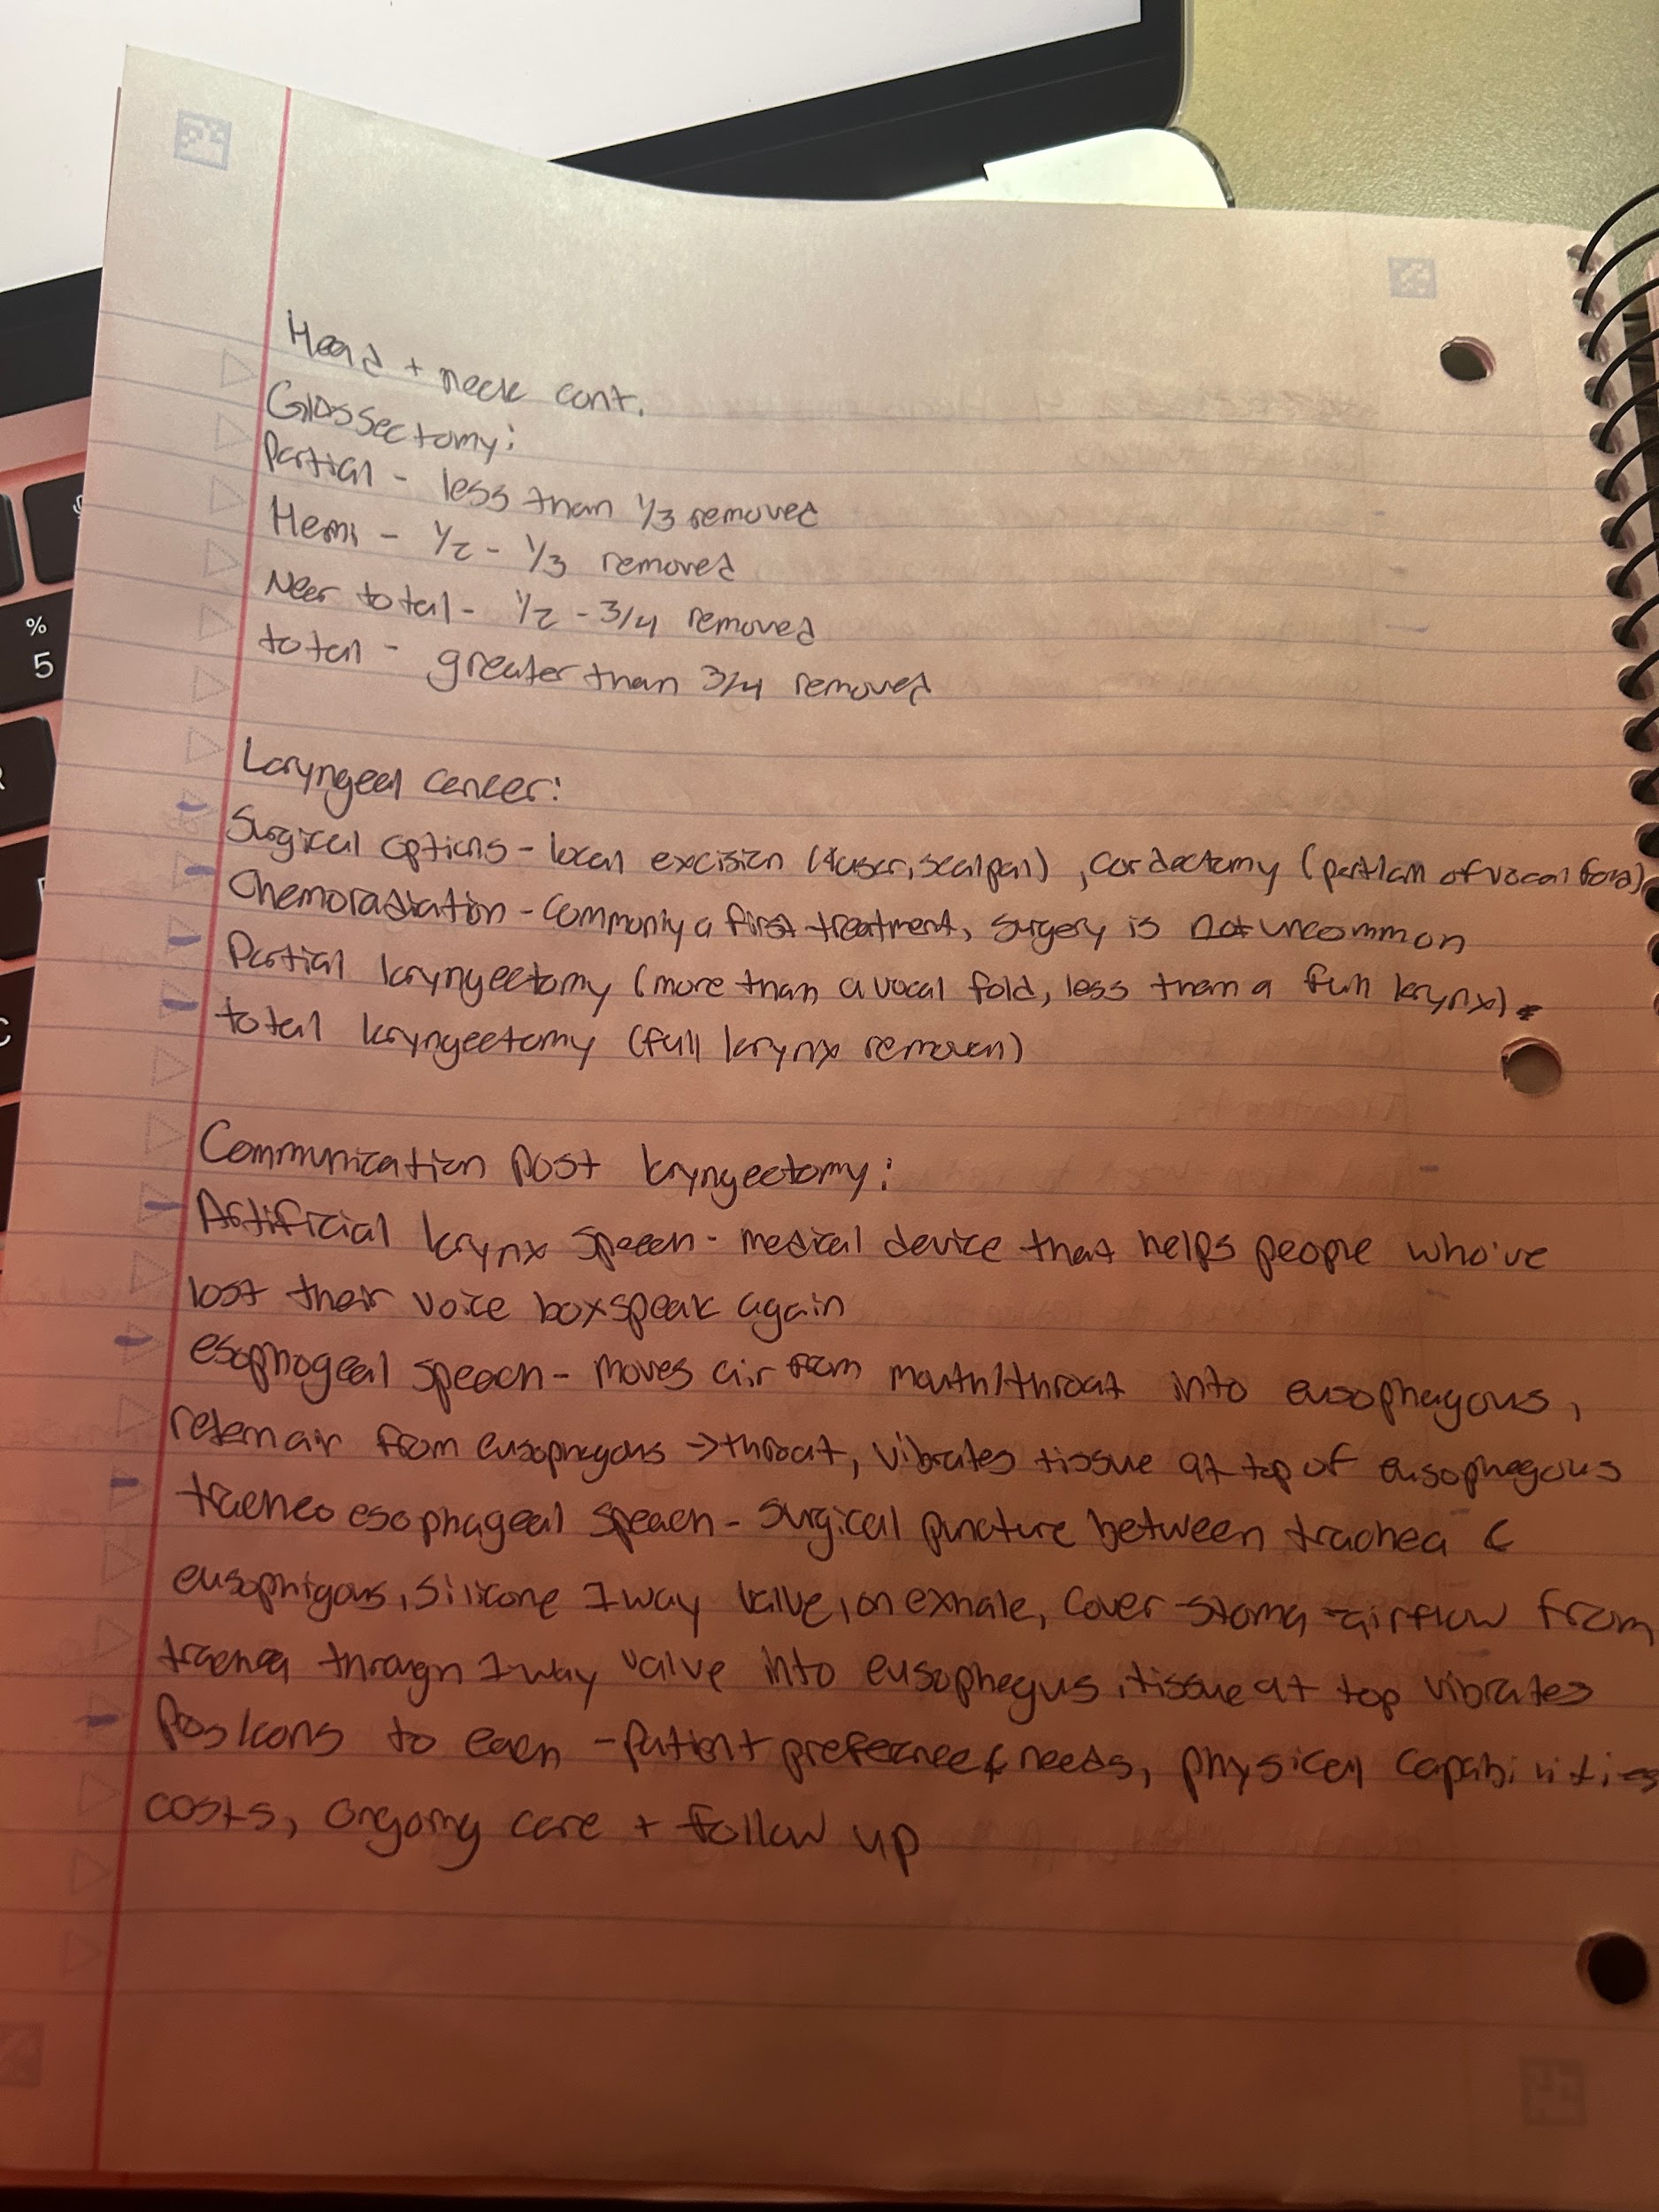 Head + neck cont.
Glossectomy:
Partial - less than 1/3 removed
Hemi - 1/2 - 1/3 removed
Near total - 1/2 - 3/4 removed
total - greater than 3/4 removed
Laryngeal cancer:
Surgical options - local excision (laser, scalpal), cordectomy (partial of vocal fold)
Chemoradiation - commonly a first treatment, surgery is not uncommon
Partial laryngectomy (more than a vocal fold, less than a full larynx)
total laryngectomy (full larynx removed)
Communication post laryngectomy:
Artificial larynx speech - medical device that helps people who've
lost their voice box speak again
esophogeal speech - moves air from mouth/throat into eusophagous,
return air from eusophagous → throat, vibrates tissue at top of eusophagous
tracheo esophageal speech - surgical puncture between trachea &
eusophigous, silicone 1 way valve, on exhale, cover stoma - airflow from
trachea through 1 way valve into eusophegus, tissue at top vibrates
Pos/cons to each - patient preference & needs, physical capabilities
costs, ongoing care + follow up
%
5